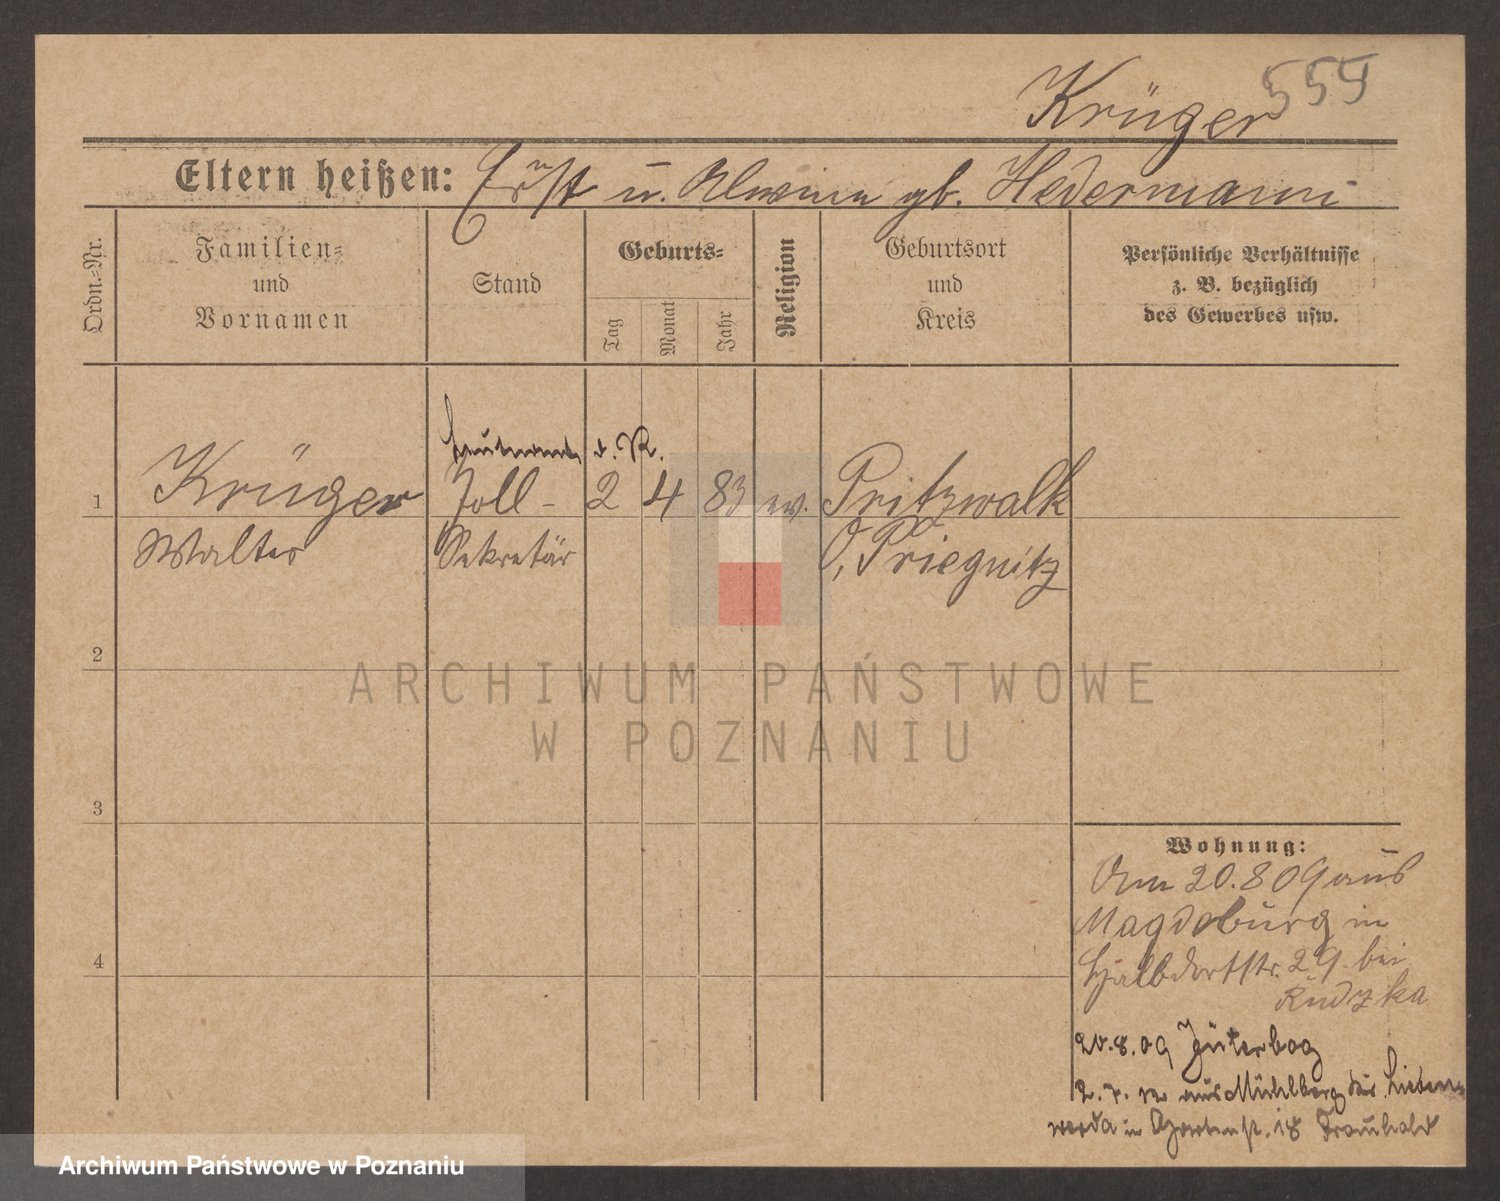 Krüger 559
Eltern heißen: Ernst u. Alwine gb. Hedermann
Ordn.=Nr.
Familien=
und
Vornamen
Stand
Geburts=
Tag
Monat
Jahr
Religion
Geburtsort
und
Kreis
Persönliche Verhältnisse
z. B. bezüglich
des Gewerbes usw.
Leutnant d. R.
1 Krüger Zoll- 2 4 83 ev. Pritzwalk
Walter Sekretär O, Priegnitz
2
ARCHIWUM PAŃSTWOWE
W POZNANIU
3
Wohnung:
Am 20.8 09 aus
Magdeburg in
4
Halbdorfstr. 29 bei
Rudzka
20.8.09 Jüterbog
aus Mühlberg Lieben-
werda in Gartenstr. 18
Archiwum Państwowe w Poznaniu